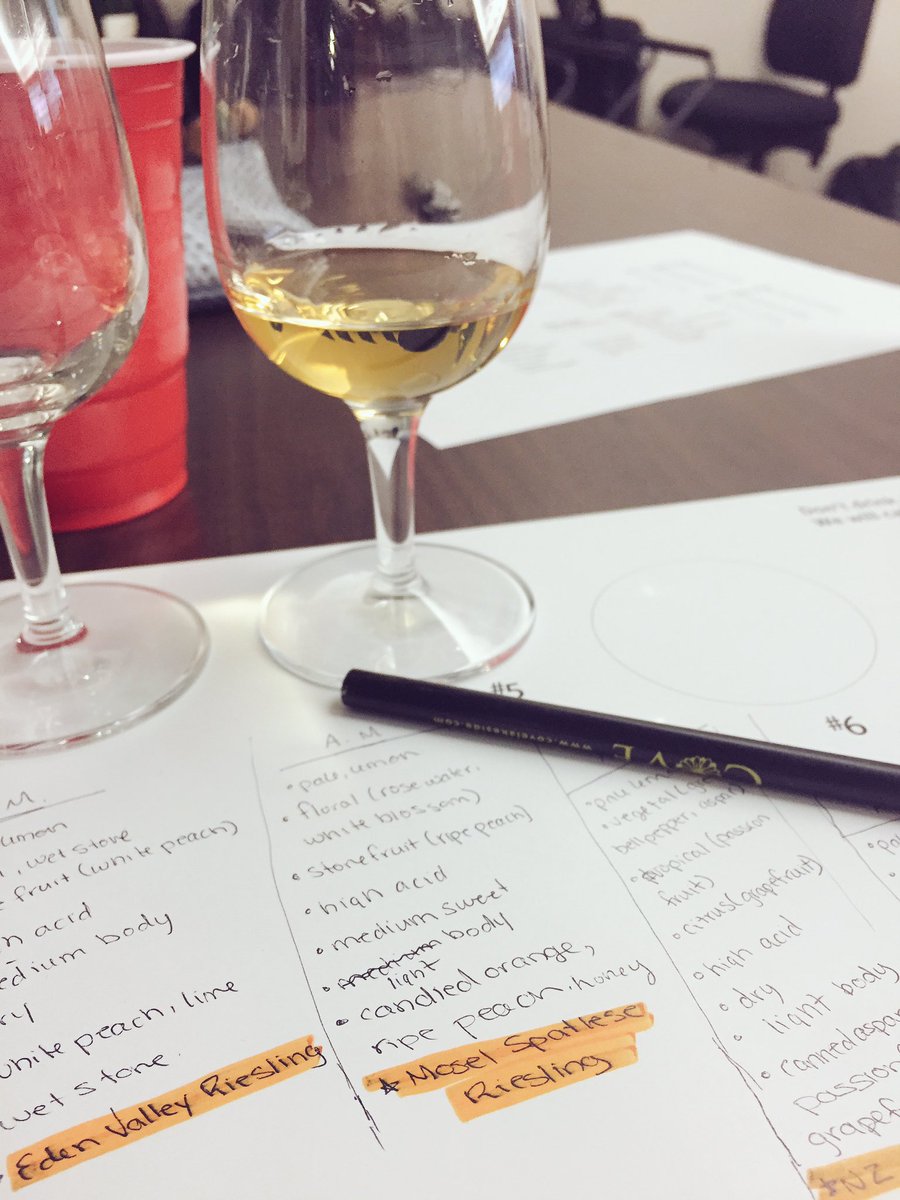 Don't drink
We will ca
#5
#6
www.covelakeside.com
COVE
M.
lemon
, wet stone
fruit (white peach)
acid
medium body
dry
white peach, lime
wet stone.
Eden Valley Riesling
A. M
• pale, lemon
• floral (rose water,
white blossom)
• stonefruit (ripe peach)
• high acid
• medium sweet
• medium body
light
• candied orange,
ripe peach, honey
★ Mosel Spatlese
Riesling
• pale lem
• vegetal (
bellpepper, aspa
• tropical (passion
fruit)
• citrus (grapefruit)
• high acid
• dry
• light body
• canned aspar
passion
grapef
★ NZ
• pa